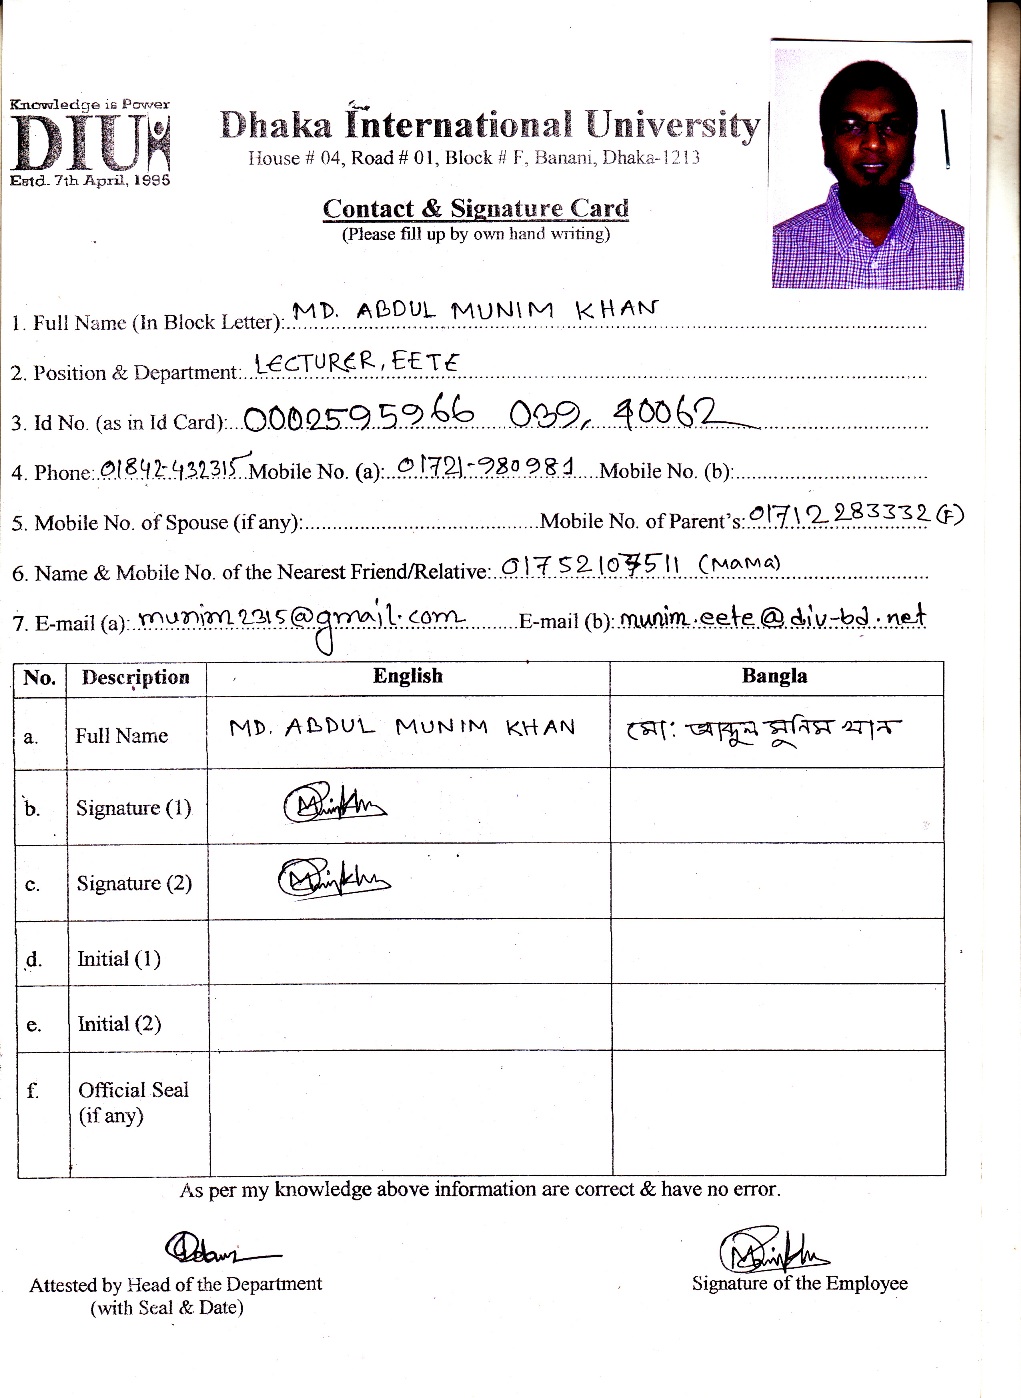 Knowledge is Power
DIU
Estd. 7th April, 1995
Dhaka International University
House # 04, Road # 01, Block # F, Banani, Dhaka-1213
Contact & Signature Card
(Please fill up by own hand writing)
1. Full Name (In Block Letter): MD. ABDUL MUNIM KHAN
2. Position & Department: LECTURER, EETE
3. Id No. (as in Id Card): 0002595966 039, 40062
4. Phone: 01842-432315 Mobile No. (a): 01721-980981 Mobile No. (b):
5. Mobile No. of Spouse (if any): Mobile No. of Parent's: 01712283332 (F)
6. Name & Mobile No. of the Nearest Friend/Relative: 01752107511 (MAMA)
7. E-mail (a): munim2315@gmail.com E-mail (b): munim.eete@diu-bd.net
No. Description English Bangla
a. Full Name MD. ABDUL MUNIM KHAN মো: আব্দুল মুনিম খান
b. Signature (1)
c. Signature (2)
d. Initial (1)
e. Initial (2)
f. Official Seal
(if any)
As per my knowledge above information are correct & have no error.
Attested by Head of the Department Signature of the Employee
(with Seal & Date)